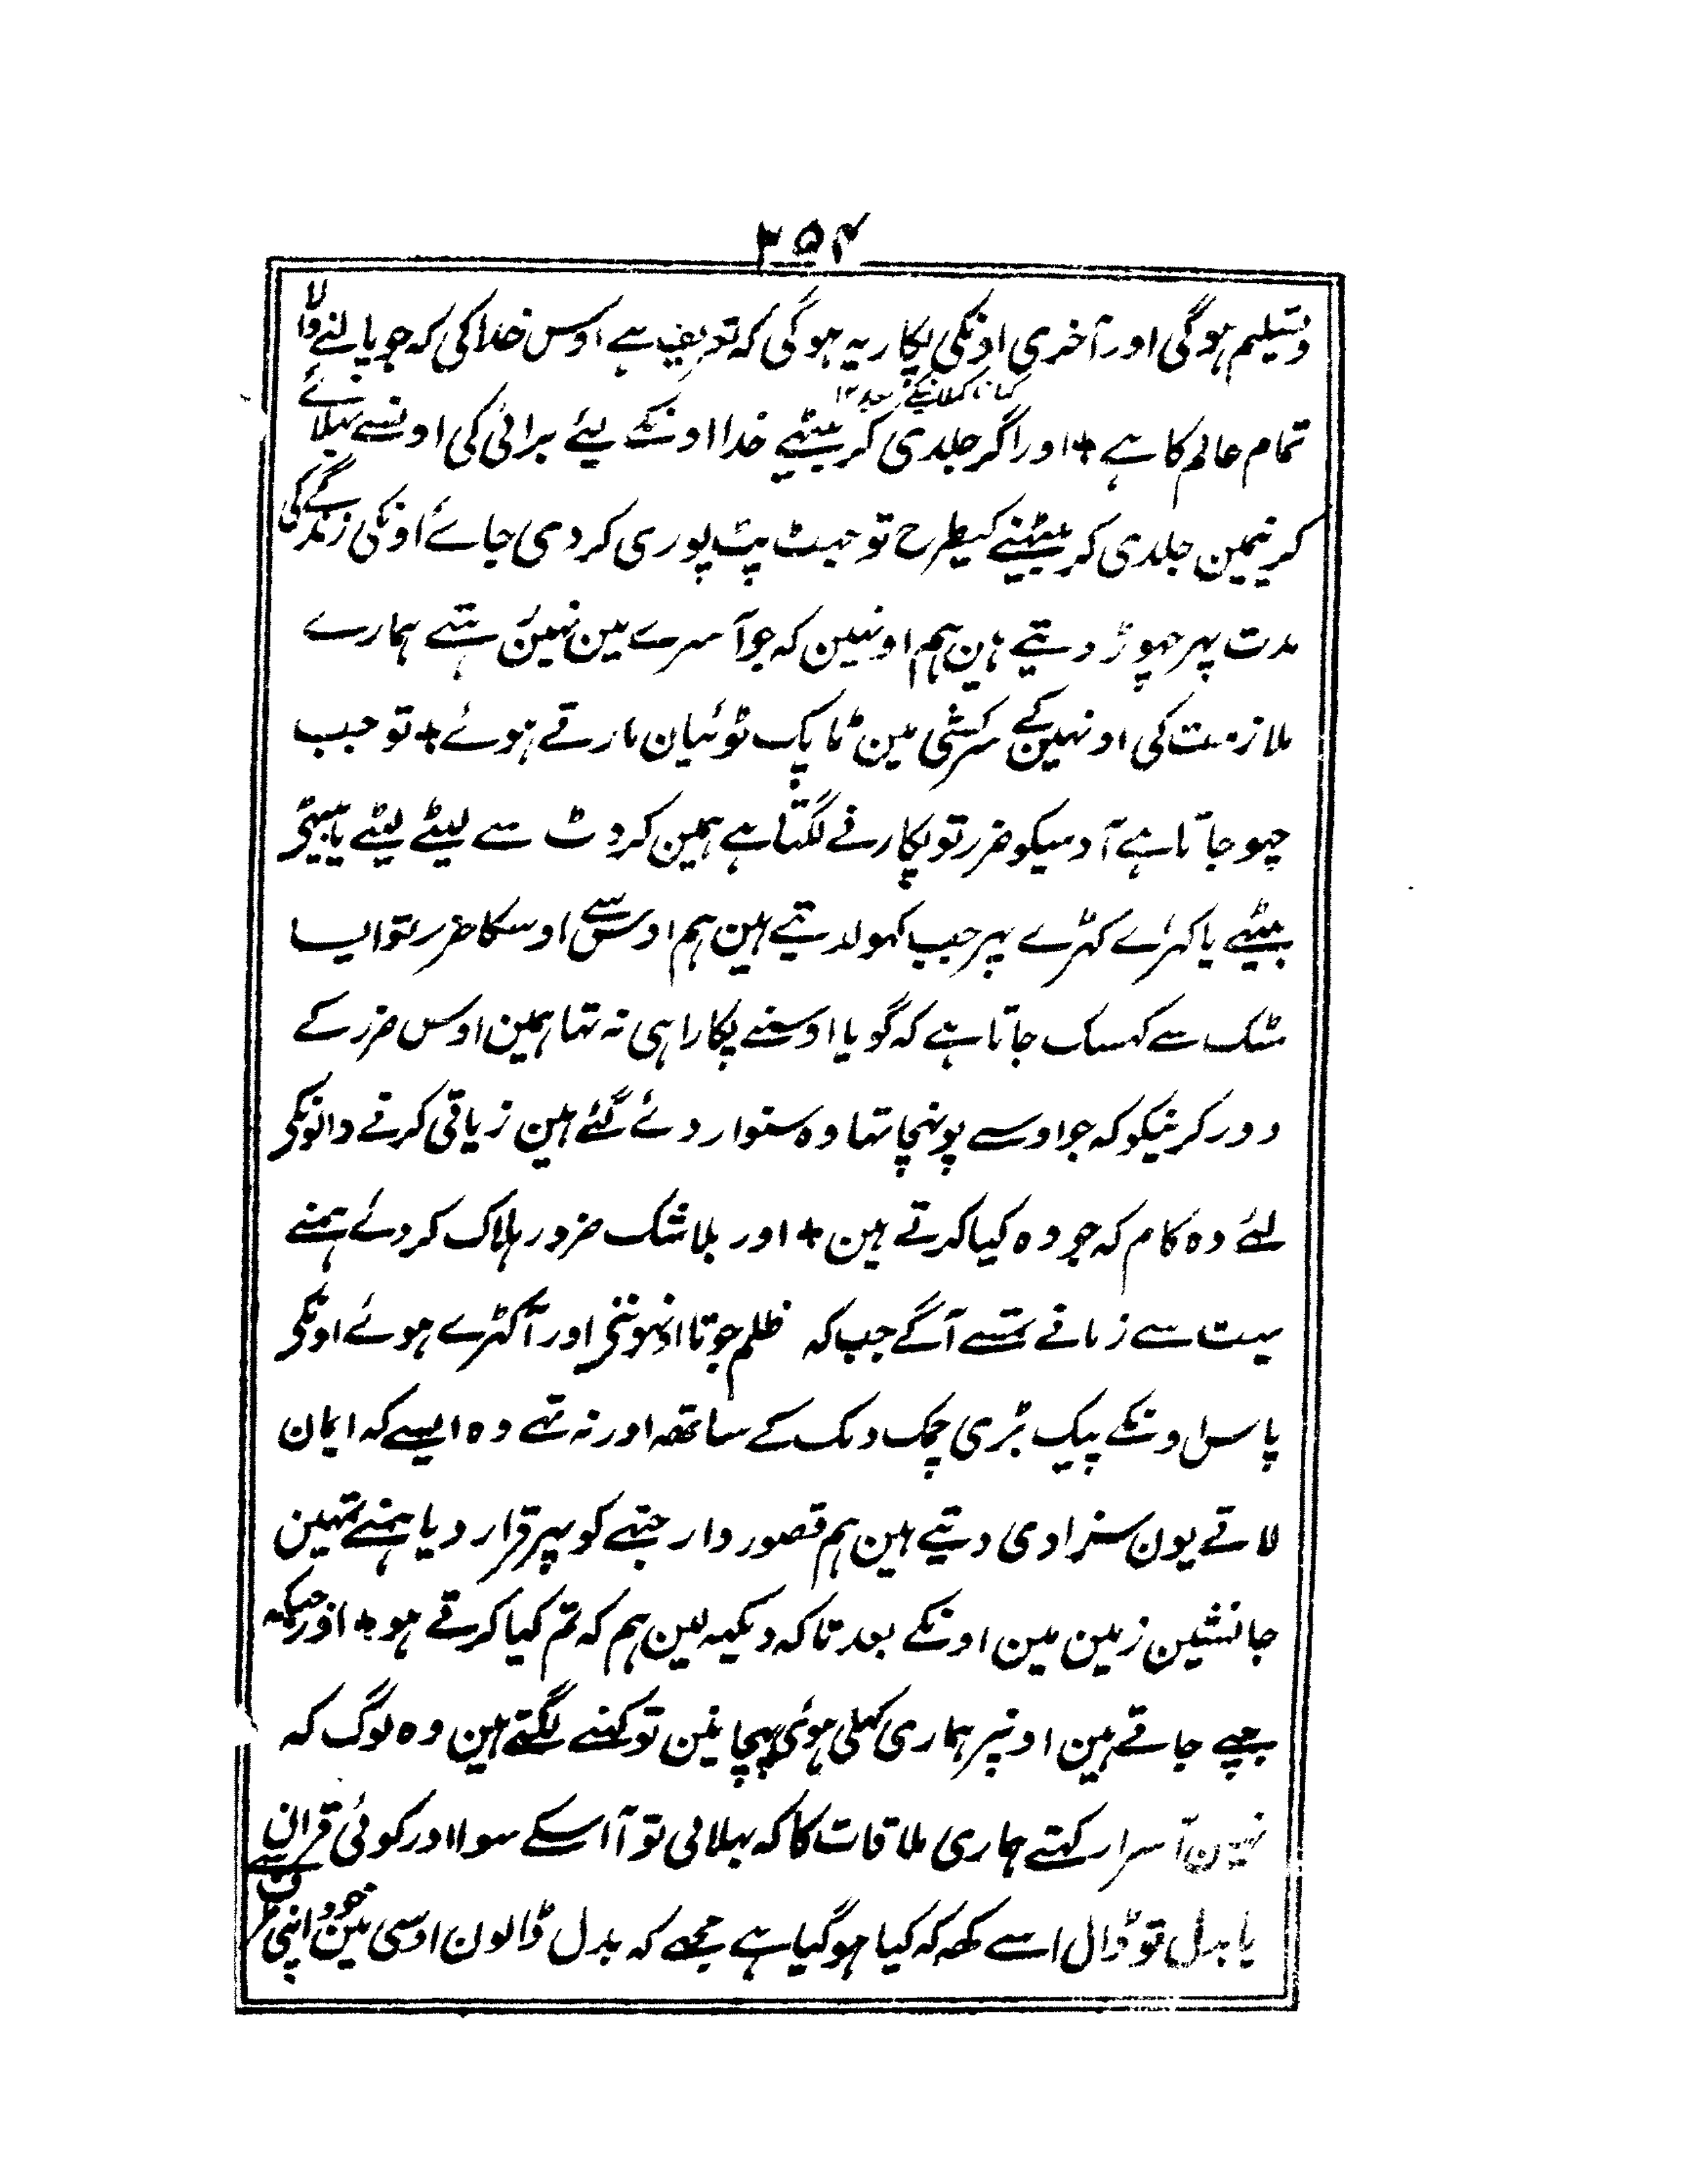 ۳۵۴
وتسلیم ہوگی اور آخری اونکی پکار یہ ہوگی کہ تعریف ہے اوس خدا کی کہ جو پالنے والا
تمام عالم کا ہے + اور اگر جلدی کر بیٹھے خدا اونکے لیئے برائی کی اونسے بہلائے
کرنیمین جلدی کر بیٹہنے کیطرح توجہٹ پٹ پوری کردی جائے اونکی زندگی کی
مدت پہر چہوڑ دیتے ہین ہم اونہین کہ جو آسرے مین نہین رہتے ہمارے
ملازمت کی اونہین کے سرکشی مین ٹاپک ٹوئیان مارتے ہوئے + تو جب
چہو جاتا ہے آدمیکو ضرر تو پکارنے لگتا ہے ہمین کروٹ سے لیٹے لیٹے یا بیٹھے
بیٹھے یا کہڑے کہڑے پہر جب کہولدیتے ہین ہم اوس سے اوسکا ضرر تو ایسا
سٹک سے کہسک جاتا ہے کہ گویا اوسنے پکارا ہی نہ تہا ہمین اوس ضرر کے
دور کرنیکو کہ جو اوسے پونہچا تہا وہ سنوار دئے گئے ہین زیاتی کرنے والونکی
لئے وہ کام کہ جو وہ کیا کرتے ہین + اور بلاشک ضرور ہلاک کردئے ہمنے
بہت سے زمانے تمسے آگے جب کہ ظلم جوتا اونہوننے اور آکہڑے ہوئے اونکی
پاس اونکے پیک بڑی چمک دمک کے ساتھہ اور نہ تہے وہ ایسے کہ ایمان
لاتے یون سزادی دیتے ہین ہم قصور وار جتہے کو پہر قرار دیا ہمنے تمہین
جانشین زمین مین اونکے بعد تاکہ دیکہہ لین ہم کہ تم کیا کرتے ہو + اور جبکہ
جپے جاتے ہین اونپر ہماری کہلی ہوئی پہچانین تو کہنے لگتے ہین وہ لوگ کہ
نہین آسرار کہتے ہماری ملاقات کا کہ بہلا لی تو آ اسکے سوا اور کوئی قران
یا بدل تو ڈال اسے کہہ کہ کیا ہوگیا ہے مجھے کہ بدل ڈالون اوسی مین خود اپنی طرف سے